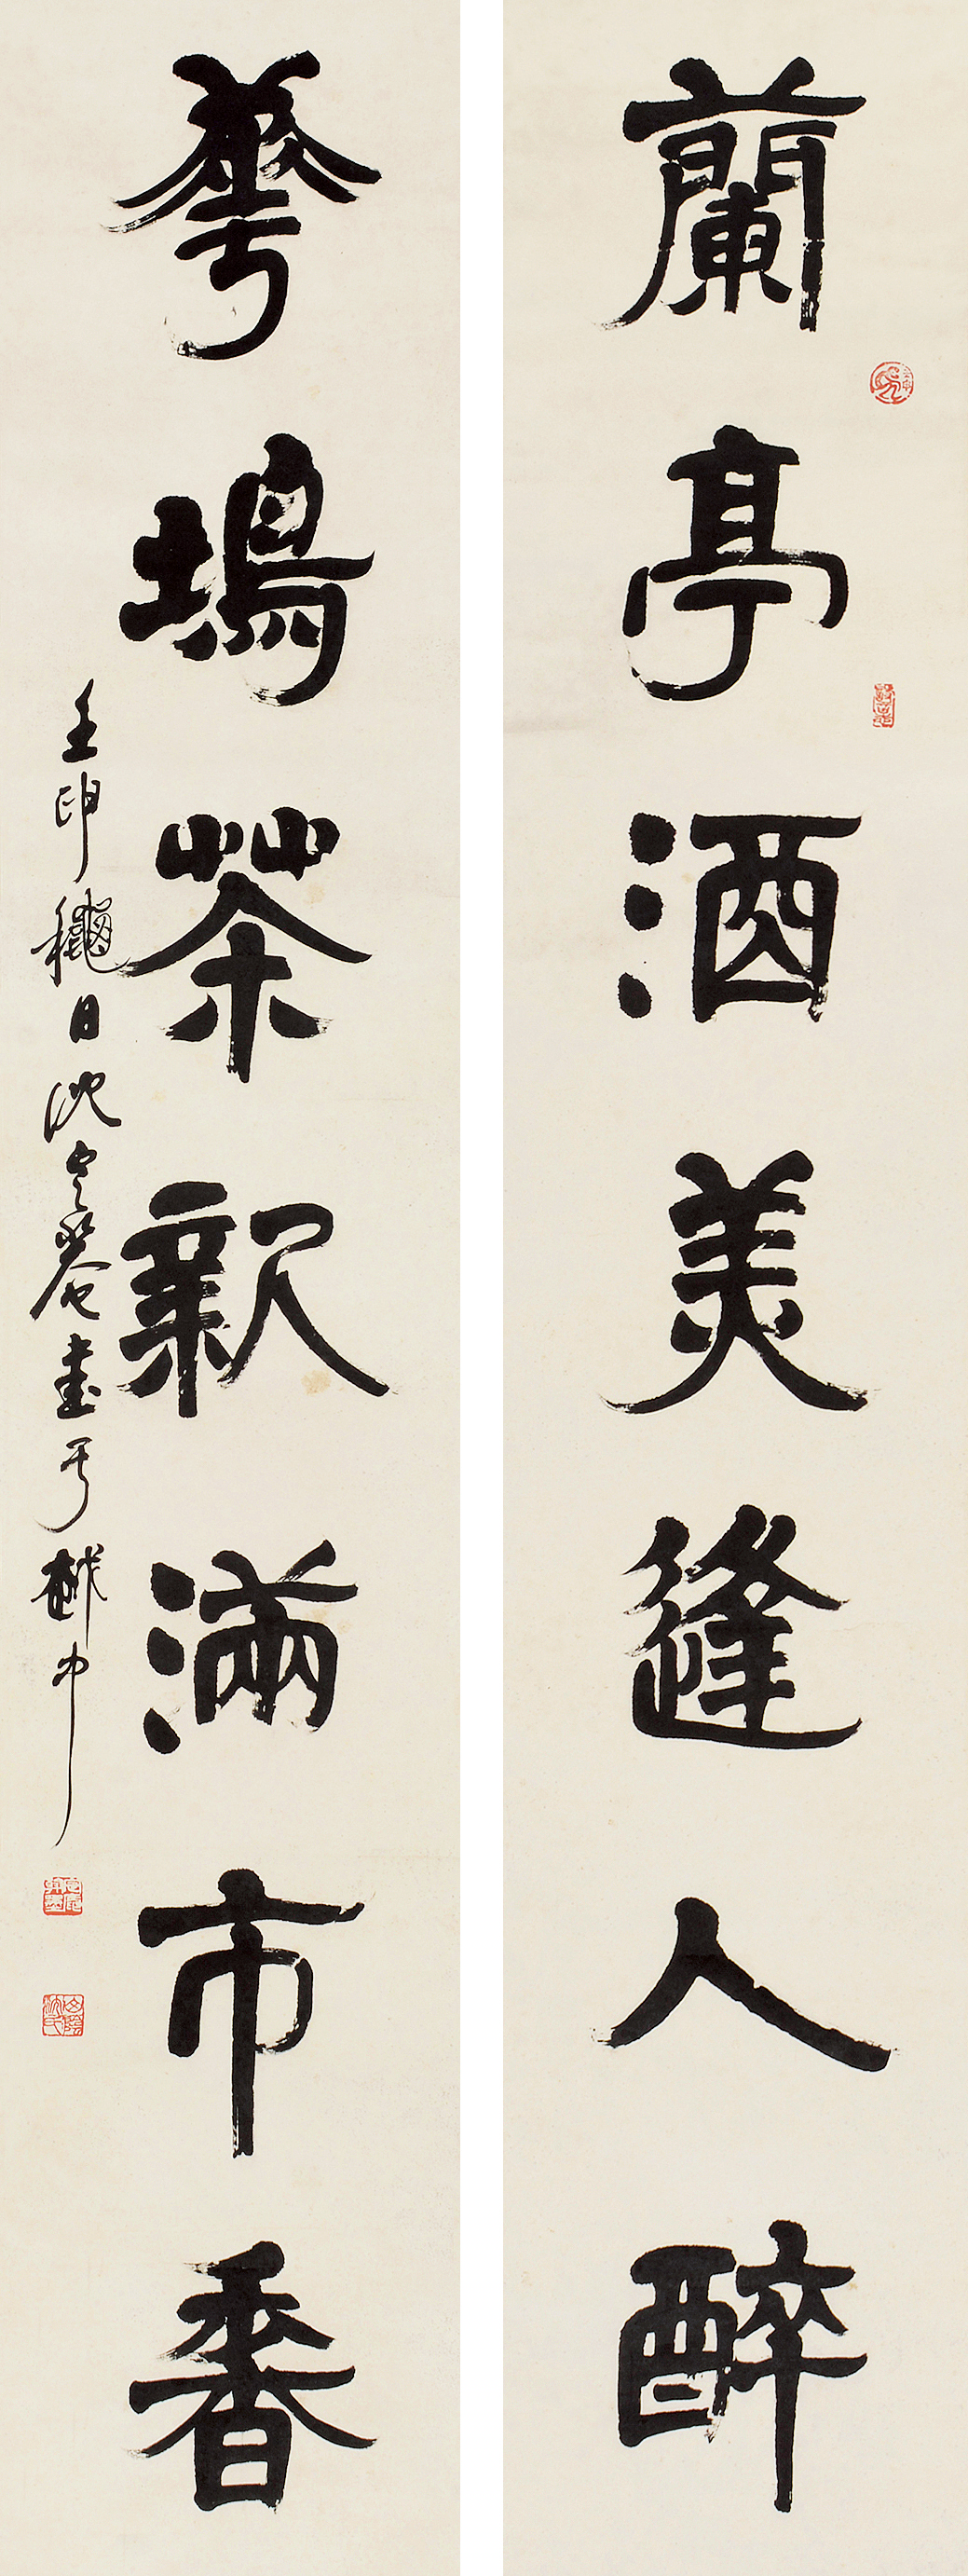 蘭亭酒美逢人醉
華塢茶新滿市香
壬申穐日沈定庵書于越中